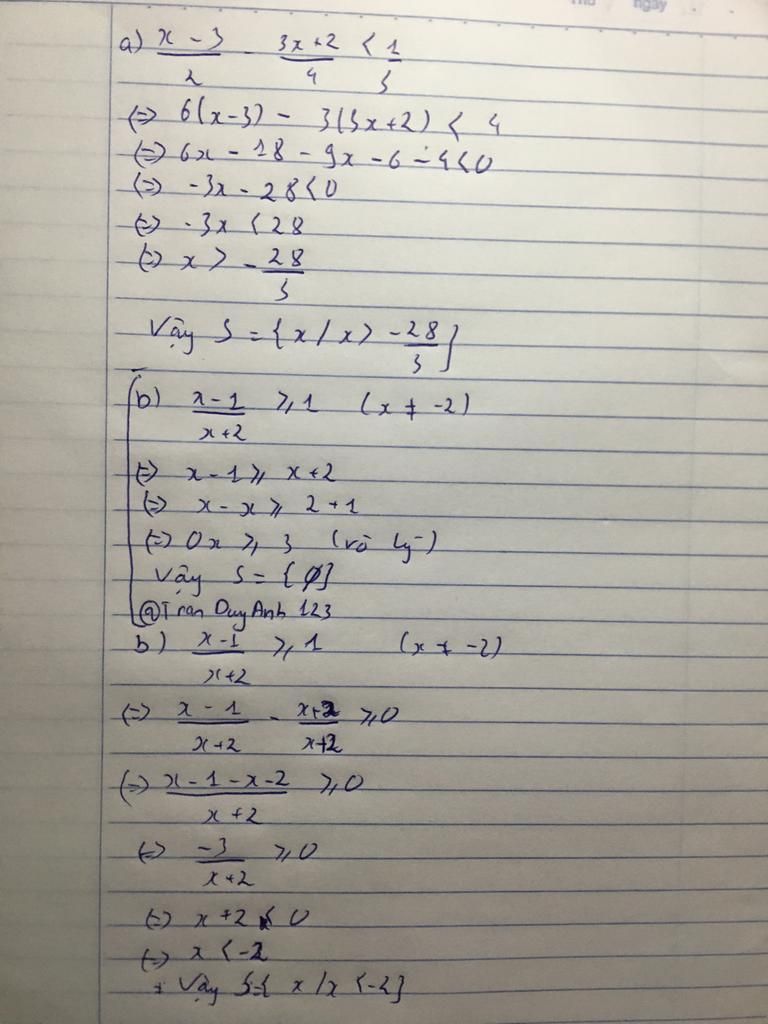 a) (x - 3)/2 - (3x+2)/4 < 1/3
(=) 6(x-3) - 3(3x+2) < 4
(=) 6x - 18 - 9x - 6 - 4 < 0
(=) -3x - 28 < 0
(=) -3x < 28
(=) x > -28/3
Vậy S = {x / x > -28/3}
b) (x-1)/(x+2) ⩾ 1 (x ≠ -2)
(=) x - 1 ⩾ x + 2
(=) x - x ⩾ 2 + 1
(=) 0x ⩾ 3 (vô lý)
Vậy S = {∅}
@Tran DuyAnh 123
b) (x-1)/(x+2) ⩾ 1 (x ≠ -2)
(=) (x - 1)/(x+2) - (x+2)/(x+2) ⩾ 0
(=) (x - 1 - x - 2)/(x+2) ⩾ 0
(=) -3/(x+2) ⩾ 0
(=) x + 2 < 0
(=) x < -2
Vậy S={ x / x < -2}